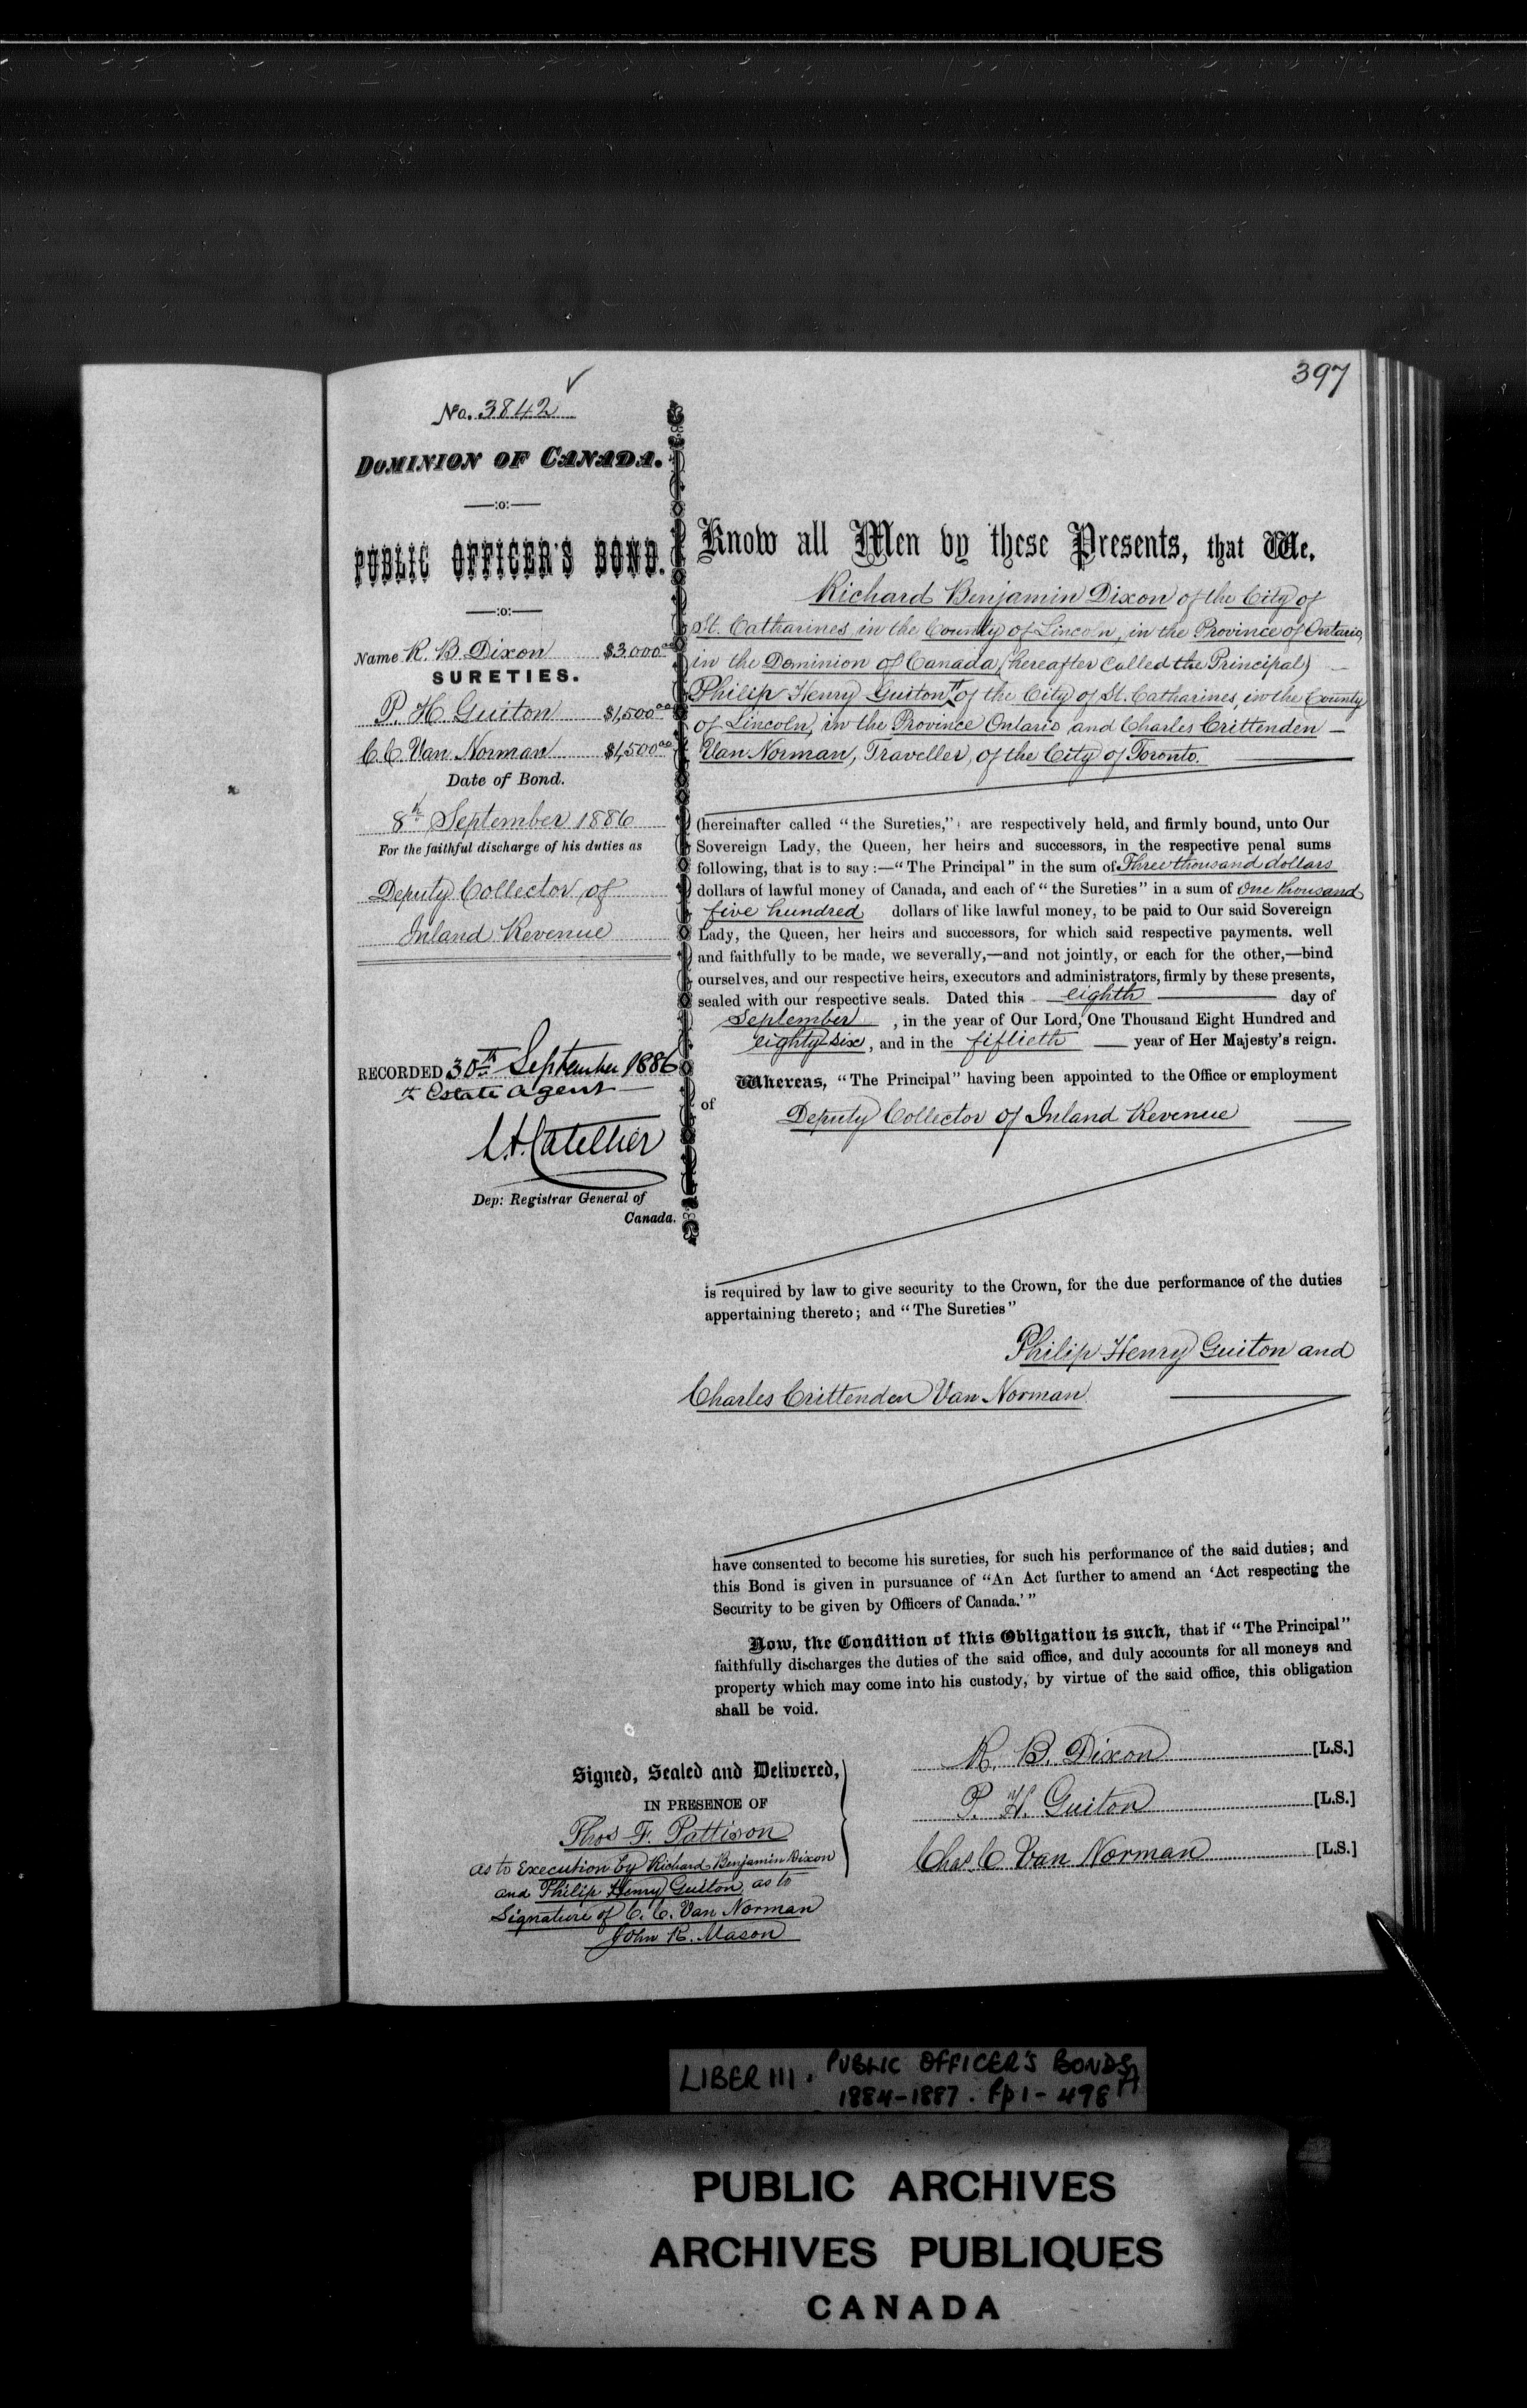 397
No. 3842
DOMINION OF CANADA.
—:o:—
PUBLIC OFFICER'S BOND.
—:o:—
Name R. B. Dixon $3.000 00
SURETIES.
P. H. Guiton $1,500 00
C. C. Van Norman $1,500 00
Date of Bond.
8th September 1886
For the faithful discharge of his duties as
Deputy Collector of
Inland Revenue
RECORDED 30th September 1886
Estate Agent
Dep: Registrar General of
Canada.
Know all Men by these Presents, that We,
Richard Benjamin Dixon of the City of
St. Catharines in the County of Lincoln, in the Province of Ontario,
in the Dominion of Canada, (hereafter called the Principal)
Philip Henry Guiton of the City of St. Catharines, in the County
of Lincoln, in the Province Ontario and Charles Crittenden —
Van Norman, Traveller, of the City of Toronto.
(hereinafter called "the Sureties," are respectively held, and firmly bound, unto Our
Sovereign Lady, the Queen, her heirs and successors, in the respective penal sums
following, that is to say:—"The Principal" in the sum of Three thousand dollars
dollars of lawful money of Canada, and each of "the Sureties" in a sum of One thousand
five hundred dollars of like lawful money, to be paid to Our said Sovereign
Lady, the Queen, her heirs and successors, for which said respective payments. well
and faithfully to be made, we severally,—and not jointly, or each for the other,—bind
ourselves, and our respective heirs, executors and administrators, firmly by these presents,
sealed with our respective seals. Dated this eighth day of
September, in the year of Our Lord, One Thousand Eight Hundred and
eighty-six, and in the fiftieth year of Her Majesty's reign.
Whereas, "The Principal" having been appointed to the Office or employment
of
Deputy Collector of Inland Revenue
is required by law to give security to the Crown, for the due performance of the duties
appertaining thereto; and "The Sureties"
Philip Henry Guiton and
Charles Crittenden Van Norman
have consented to become his sureties, for such his performance of the said duties; and
this Bond is given in pursuance of "An Act further to amend an 'Act respecting the
Security to be given by Officers of Canada.'"
Now, the Condition of this Obligation is such, that if "The Principal"
faithfully discharges the duties of the said office, and duly accounts for all moneys and
property which may come into his custody, by virtue of the said office, this obligation
shall be void.
Signed, Sealed and Delivered,
IN PRESENCE OF
Thos F. Pattison
as to Execution by Richard Benjamin Dixon
and Philip Henry Guiton, as to
Signature of C. C. Van Norman
John R. Mason
R. B. Dixon [L.S.]
P. H. Guiton [L.S.]
Chas. C Van Norman [L.S.]
LIBER 111. PUBLIC OFFICER'S BONDS
1884-1887. pp 1-498
PUBLIC ARCHIVES
ARCHIVES PUBLIQUES
CANADA